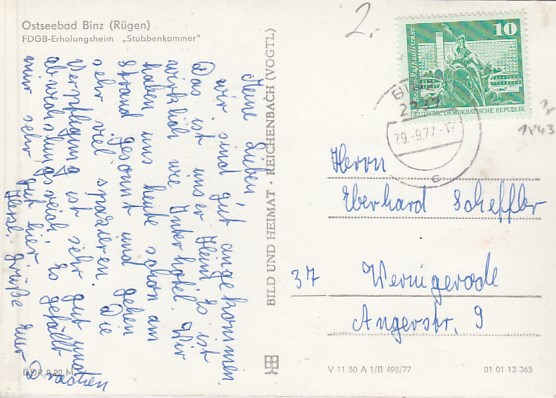 Ostseebad Binz (Rügen)
FDGB-Erholungsheim „Stubbenkammer"
Meine Lieben!
wir sind gut angekommen
Das ist unser Heim. Es ist
wirklich wie Interhotel. Wir
haben uns heute schon am
Strand gesonnt und gehen
sehr viel spazieren. Die
Verpflegung ist sehr gut und
abwechslungsreich. Es gefällt
mir sehr gut hier.
Herzl. Grüße Eur
BILD UND HEIMAT · REICHENBACH (VOGTL)
2.
10
DEUTSCHE DEMOKRATISCHE REPUBLIK
29.-9.77.-1
c
1843
Herrn
Eberhard Scheffler
37 Wernigerode
Angerstr. 9
V 11 50 A 1/B 498/77
01 01 13 365